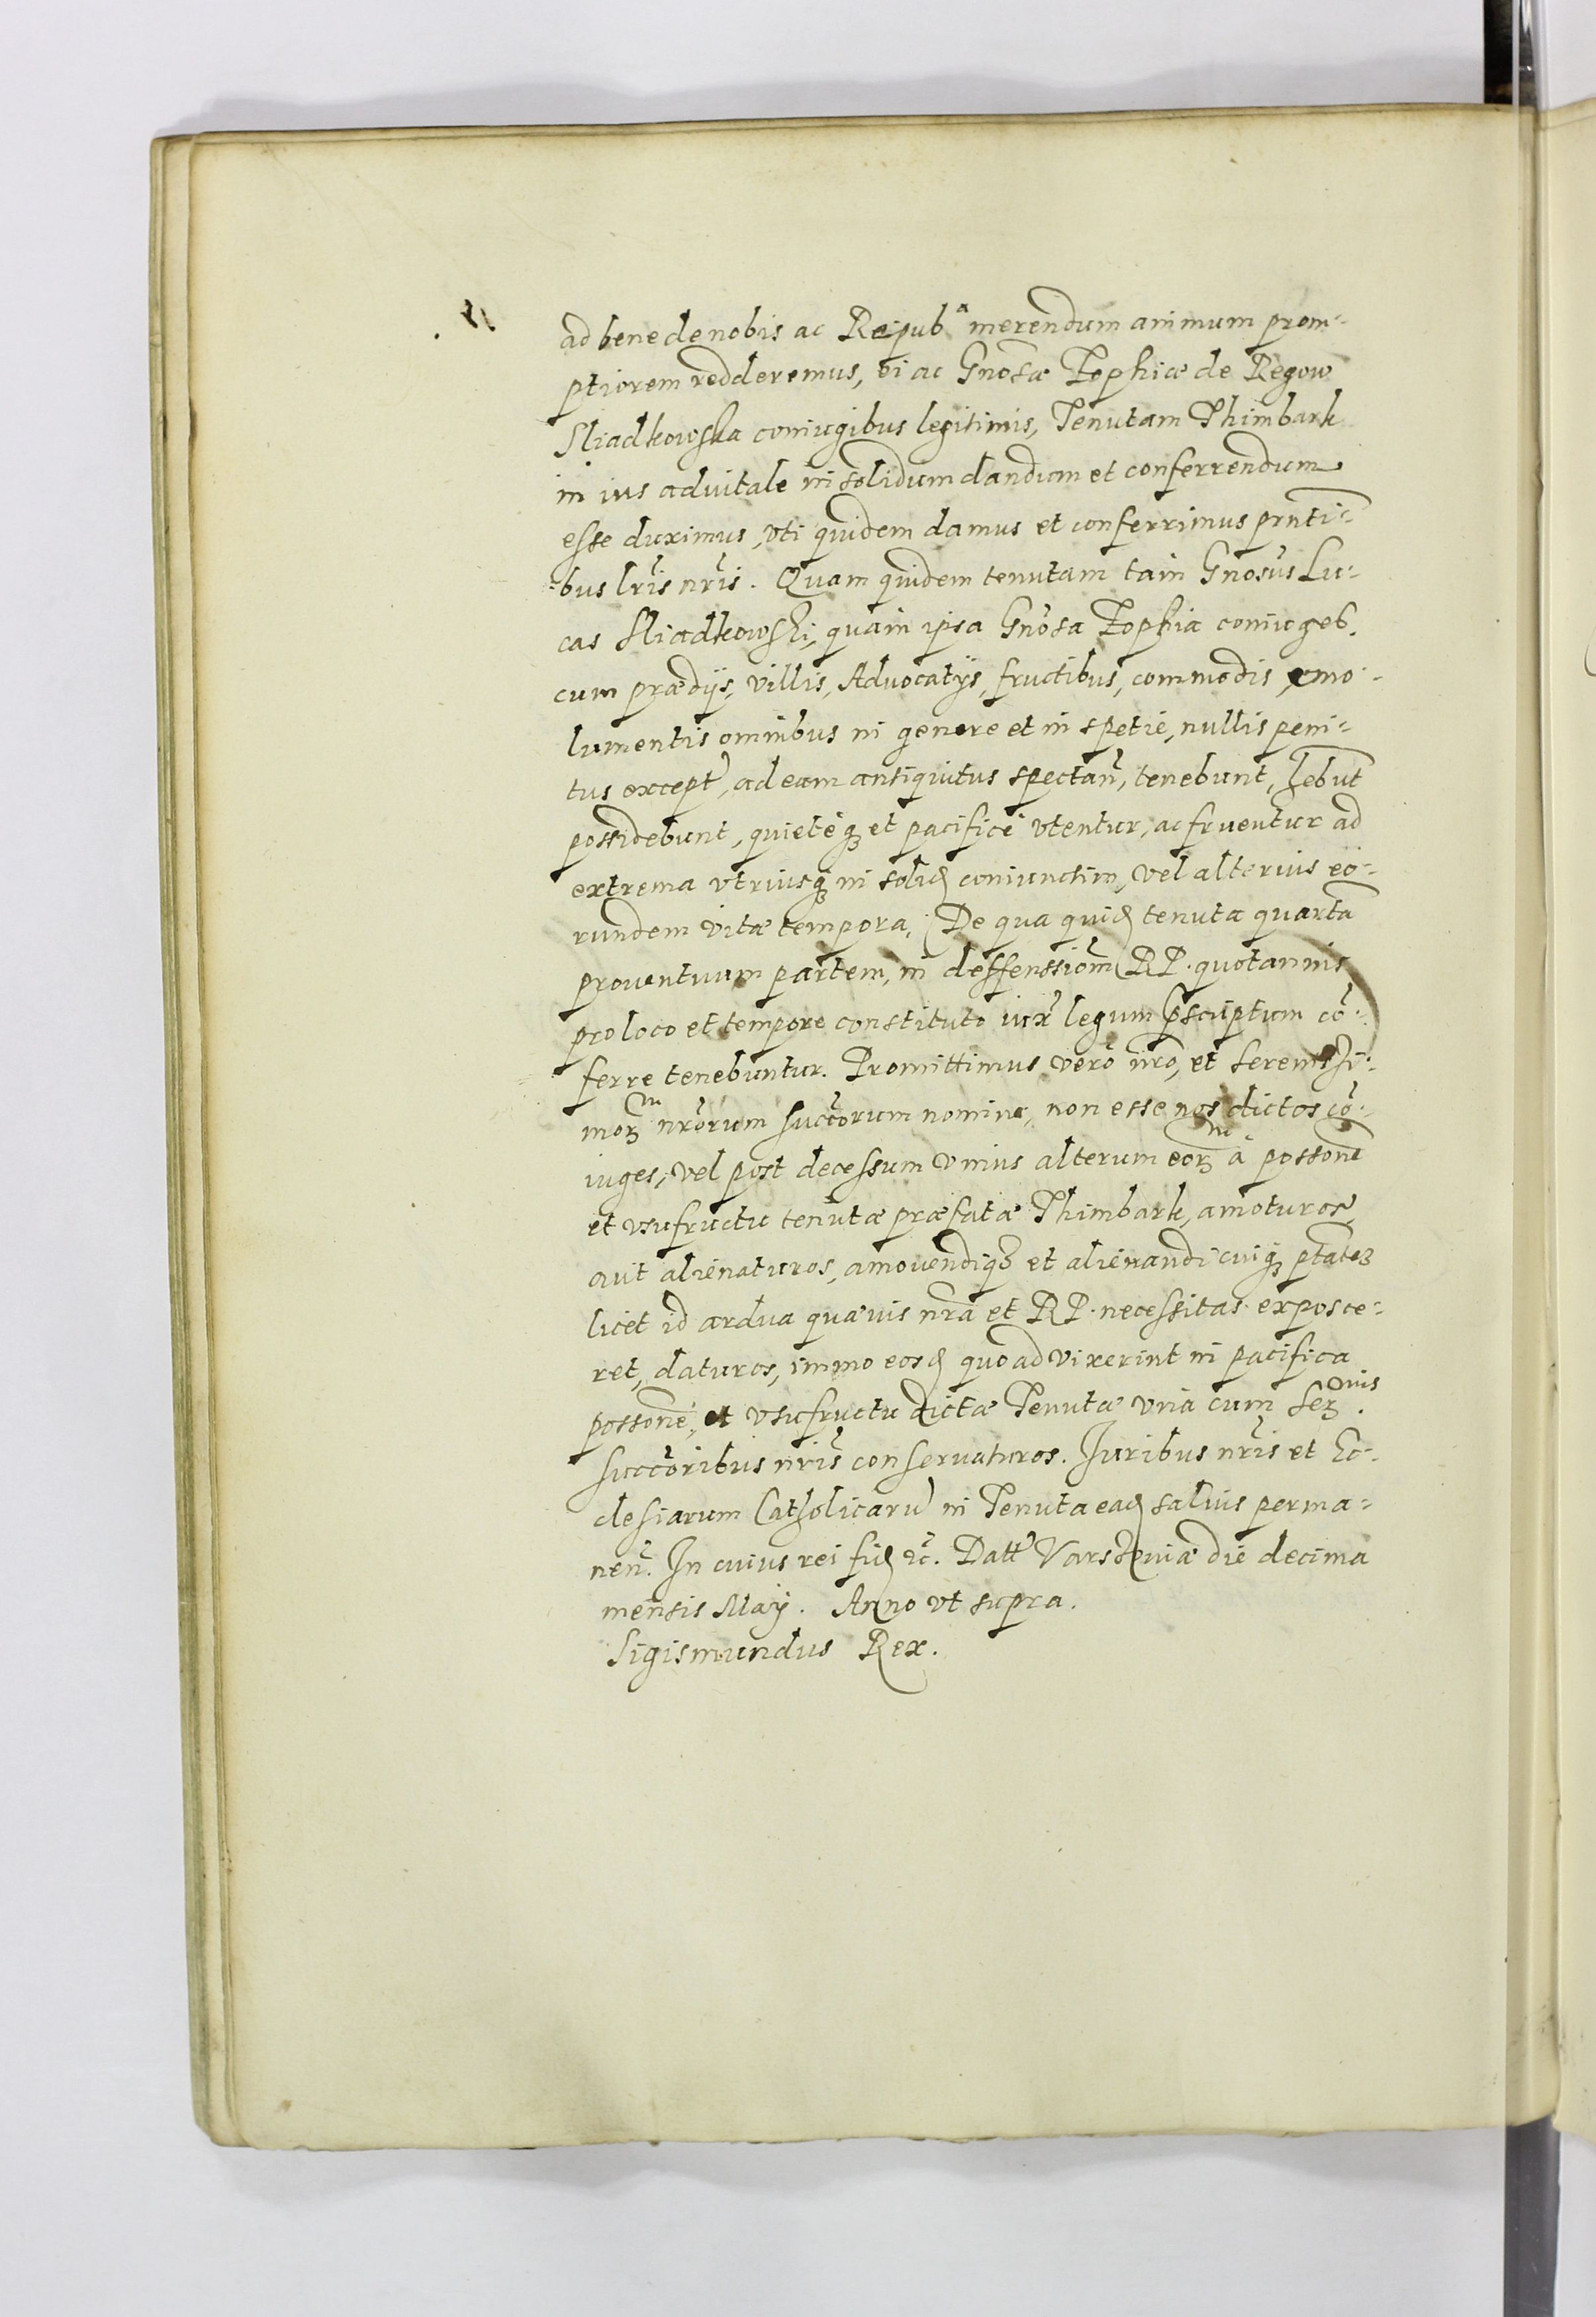 ad bene de nobis ac Reipub.ᵃ merendum animum prom-
ptiorem redderemus, ei ac Gnosæ Zophiæ de Regow
Sliadkowska coniugibus legitimis, Tenutam Thimbark
in ius aduitale in solidum dandum et conferrendum
esse duximus, vti quidem damus et conferrimus prnti-
bus lris nris. Quam quidem tenutam tam Gnosus Lu-
cas Sliadkowski, quam ipsa Gnosa Zophia coniugeb.
cum prædijs, villis, Aduocatijs, fructibus, commodis, emo-
lumentis omnibus in genere et in spetie, nullis peni-
tus except, ad eam antiquitus spectan, tenebunt, hebut
possidebunt, quietéq3 et pacificé vtentur, ac fruentur ad
extrema vtriusq3 in solid coniunctim, vel alterius eo-
rundem vitæ tempora. De qua quid tenuta quarta
prouentuum partem, in deffenssiom RP. quotannis
pro loco et tempore constituto iux legum pscriptum cō-
ferre tenebuntur. Promittimus vero nro, et serenissi-
morᵐ nrorum succorum nomine, non esse nos dictos cō-
iuges, vel post decessum vnius alterum eorᵐ á possone
et vsufructu tenutæ præfatæ Thimbark, amoturos,
aut alienaturos, amouendiq3 et alienandi cuiq3 ptatem
licet id ardua quæuis nra et RP. necessitas exposce-
ret, daturos, immo eosd quoad vixerint in pacifica
possone, et vsufructu dictæ Tenutæ vna cum Serᵐⁱˢ.
succoribus nris conseruaturos. Iuribus nris et Ec-
clesiarum Catholicaru in Tenuta ead saluis perma-
nen. In cuius rei fid &c. Datt Varschouiæ die decima
mensis Maij. Anno vt supra.
Sigismundus Rex.